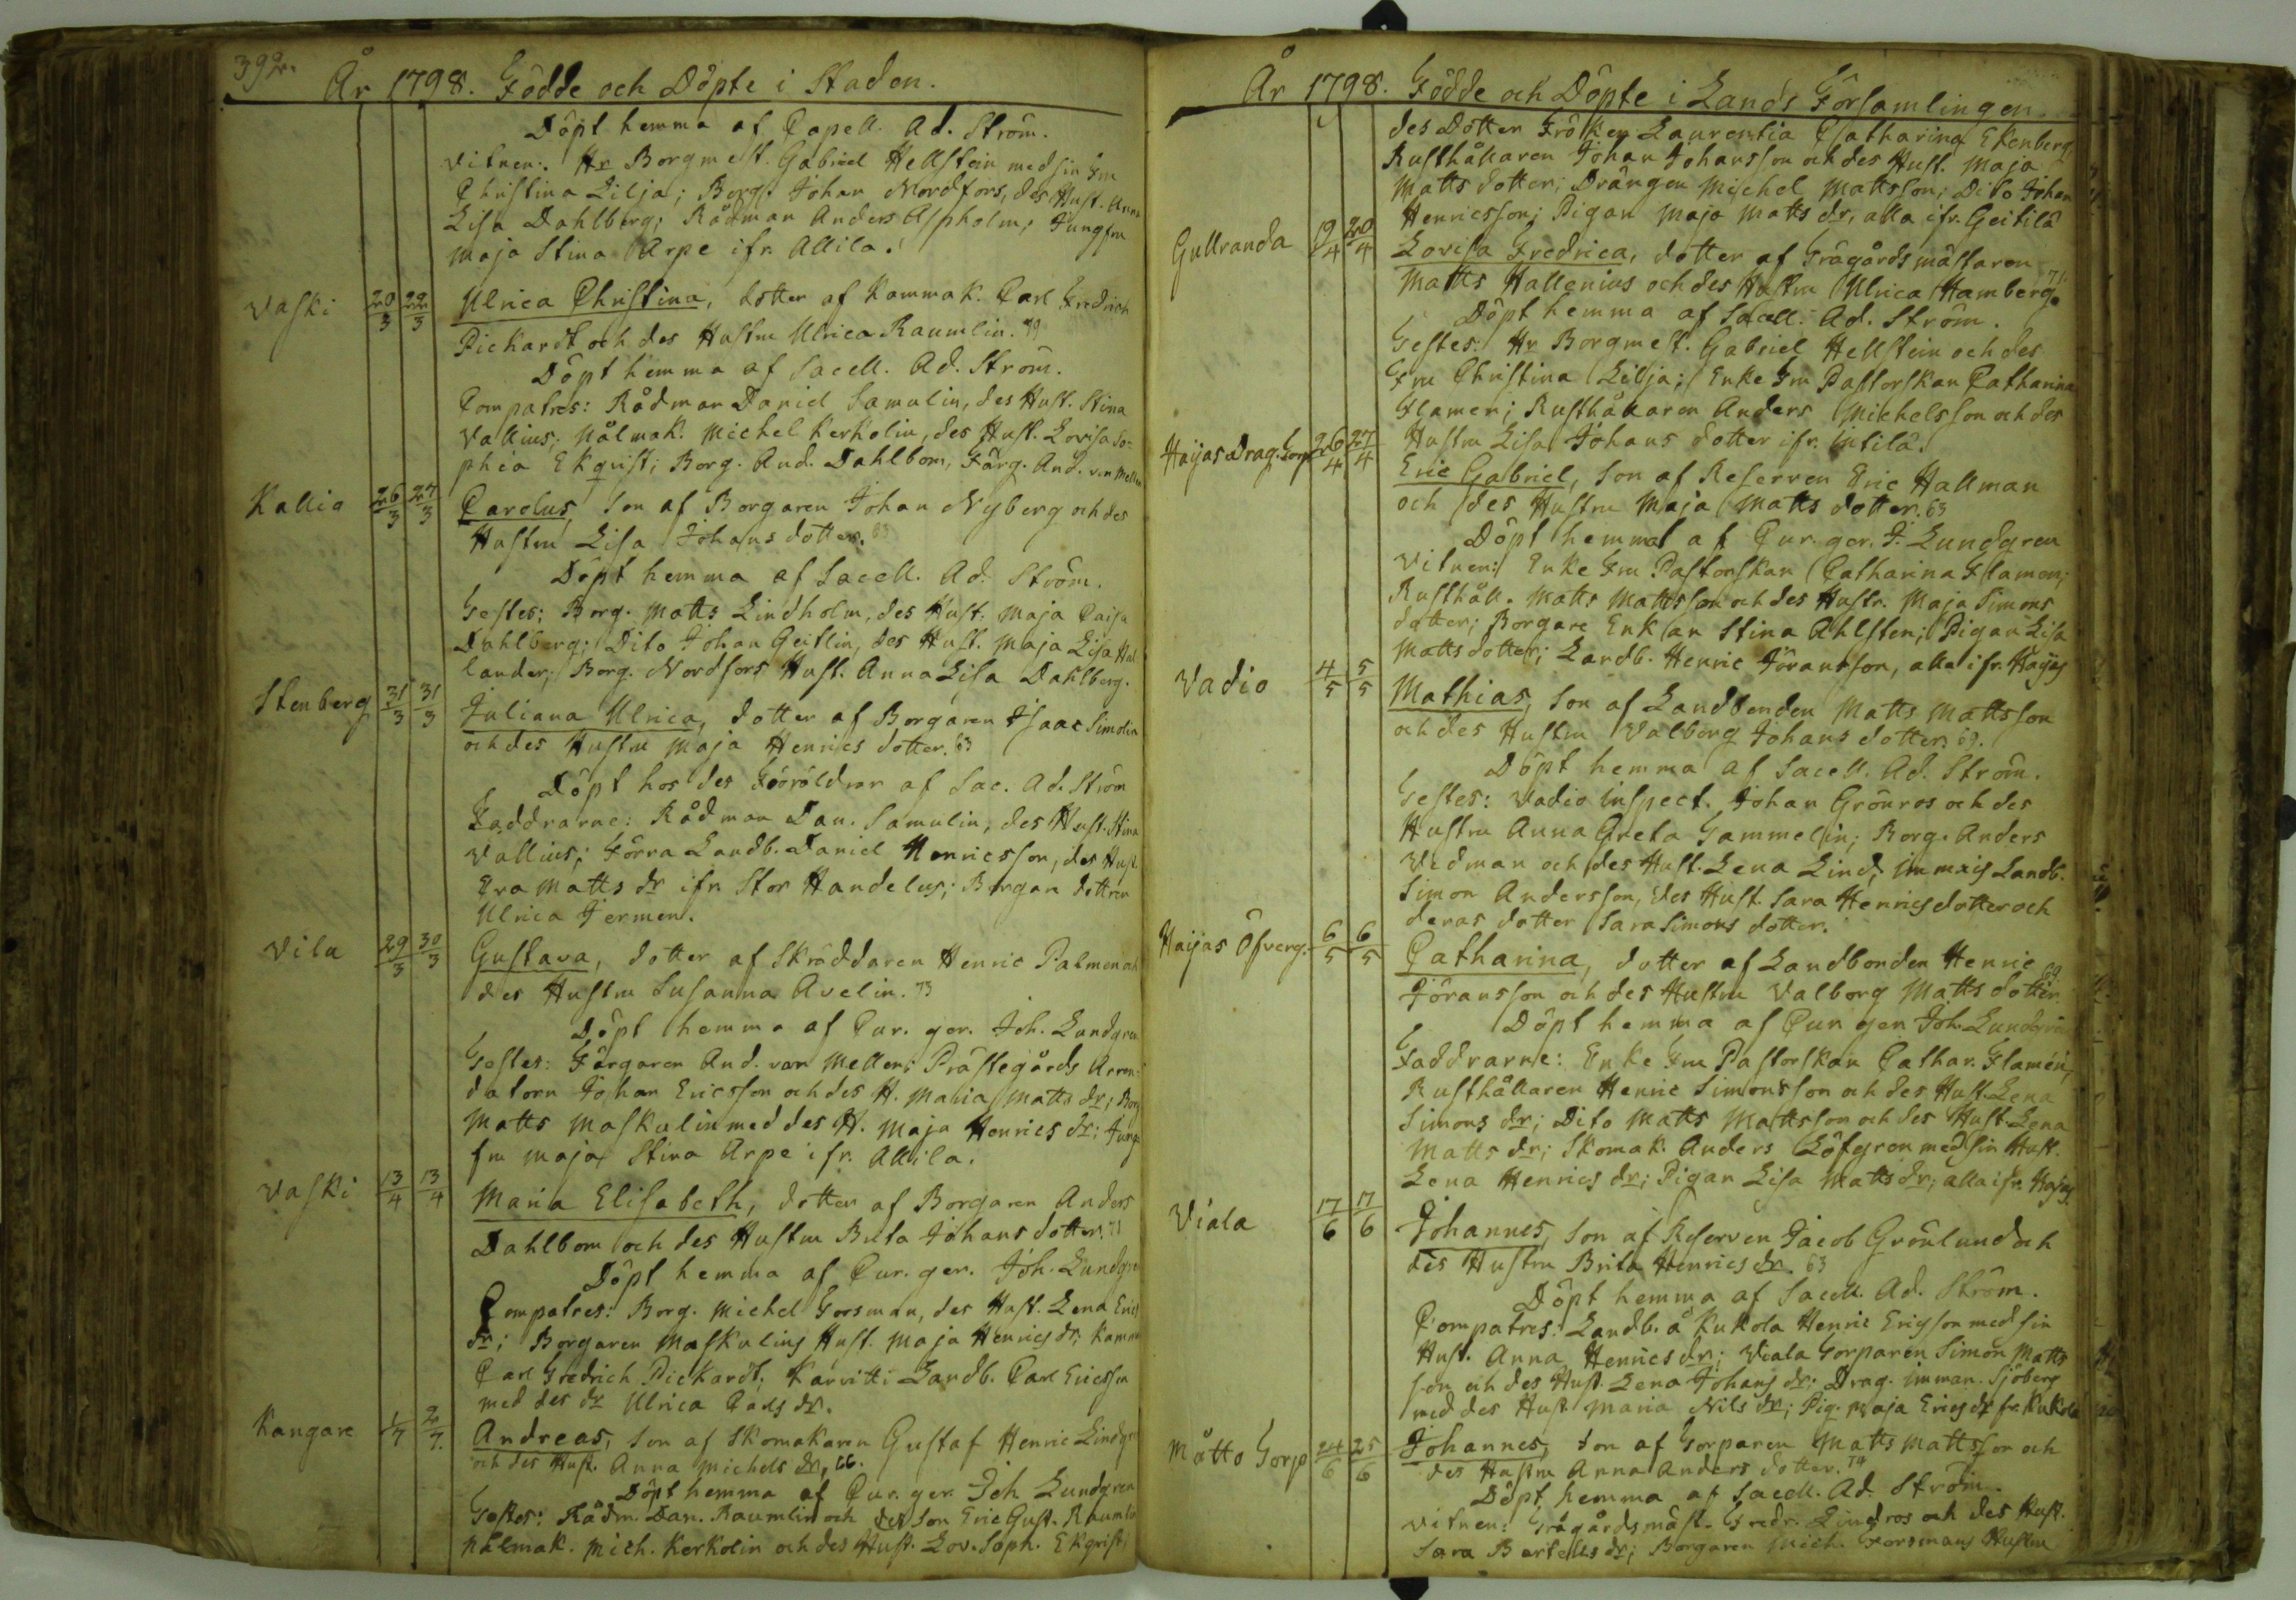 392.
År 1798. Födde och Döpte i Staden.
Döpt hemma af Capell. Ad. Ström.
Vitnen: Hr Borgmest. Gabriel Hellstein med sin Fru
Christina Lilja; Borg. Johan Nordfors, des Hust. Anna
Lisa Dahlberg; Rådman Anders Aspholm; Jungfru
Maja Stina Arpe ifr. Allila.
Vaski 20/3 22/3 Ulrica Christina, dotter af Kammak. Carl Fredrich
Pickardt och des Hustru Ulrica Raumlin.
Döpt hemma af Sacell. Ad. Ström.
Compatres: Rådman Daniel Samulin, des Hust. Stina
Vallius; Nålmak. Michel Kerkolin, des Hust. Lovisa So=
phia Ekqvist; Borg. And. Dahlbom, Färg. And. von Mellen
Kallio 26/3 27/3 Carolus, Son af Borgaren Johan Nyberg och des
Hustru Lisa Johans dotter. 63
Döpt hemma af Sacell. Ad. Ström.
Testes: Borg. Matts Lindholm, des Hust. Maja Caisa
Dahlberg; Dito Johan Geitlin, des Hust. Maja Lisa Hel
lander; Borg. Nordfors Hust. Anna Lisa Dahlberg.
Stenberg 31/3 31/3 Juliana Ulrica, dotter af Borgaren Isaac Simolin
och des Hustru Maja Henrics dotter. 63
Döpt hos des Föröldrar af Sac. Ad. Ström
Faddrarne: Rådman Dan. Samulin, des Hust. Stina
Vallius; Förra Landb. Daniel Henricsson, des Hust.
Eva Matts dr ifr. Stor Handelus; Borgare dottren
Ulrica Fermen.
Vila 29/3 30/3 Gustava, dotter af Skräddaren Henric Palmen och
des Hustru Susanna Avelin. 73
Döpt hemma af Cur. ger. Joh. Lundgren
Testes: Färgaren And. von Mellen; Prästegårds Arren=
datorn Johan Ericsson och des H. Maria Matts dr; Borg
Matts Maskulin med des H. Maja Henrics dr; Jung
fru Maja Stina Arpe ifr. Allila.
Vaski 13/4 13/4 Maria Elisabeth, dotter af Borgaren Anders
Dahlbom och des Hustru Brita Johans dotter. 71
Döpt hemma af Cur. ger. Joh. Lundgren
Compatres: Borg. Michel Forsman, des Hust. Lena Erics
dr; Borgaren Maskulins Hust. Maja Henrics dr; Kammak
Carl Fredrich Pickardt; Karvitti Landb. Carl Ericsson
med des dr Ulrica Carls dr.
Kangare 1/7 2/7 Andreas, Son af Skomakaren Gustaf Henric Lindgren
och des Hust. Anna Michels dr, 66.
Döpt hemma af Cur. ger. Joh Lundgren
Testes: Rådm. Dan. Raumlin och des Son Eric Gust. Raumlin
Nålmak. Mich. Kerkolin och des Hust. Lov. Soph. Ekqvist;
År 1798. Födde och Döpte i Lands Församlingen.
des Dotter Fröken Laurentia Catharina Ekenberg
Rusthållaren Johan Johansson och des Hust. Maja
Matts dotter; Drängen Michel Mattsson; Dito Johan
Henricsson; Pigan Maja Matts dr, alla ifr. Geitilä
Gullranda 19/4 20/4 Lovisa Fredrica, dotter af Trägårdsmästaren
Matts Hallenius och des Hustru Ulrica Hamberg. 71.
Döpt hemma af Sacell. Ad. Ström.
Testes: Hr Borgmest. Gabriel Hellstein och des
Fru Christina Lilja; Enke Fru Pastorskan Catharina
Flamen; Rusthållaren Anders Michelsson och des
Hustru Lisa Johans dotter ifr. Intilä.
Haijas Drag. Torp 26/4 27/4 Eric Gabriel, Son af Reserven Eric Hallman
och des Hustru Maja Matts dotter. 63
Döpt hemma af Cur. ger. J. Lundgren
Vitnen: Enke Fru Pastorskan Catharina Flamen;
Rusthåll. Matts Mattsson och des Hustr. Maja Simons
dotter; Borgare Enkan Stina Ahlsten; Pigan Lisa
Matts dotter; Landb. Henric Göransson, alla ifr. Haijas
Vadio 4/5 5/5 Mathias, Son af Landbonden Matts Mattsson
och des Hustru Valborg Johans dotter. 69.
Döpt hemma af Sacell. Ad. Ström.
Testes: Vadio Inspect. Johan Grönros och des
Hustru Anna Greta Gammelin; Borg. Anders
Vidman och des Hust. Lena Lind; Immais Landb.
Simon Andersson, des Hust. Sara Henrics dotter och
deras dotter Sara Simons dotter.
Haijas Öfverg. 6/5 6/5 Catharina, dotter af Landbonden Henric
Jöransson och des Hustru Valborg Matts dotter 69
Döpt hemma af Cur ger Joh. Lundgren
Faddrarne: Enke Fru Pastorskan Cathar. Flamén;
Rusthållaren Henric Simonsson och des Hust. Lena
Simons dr; Dito Matts Mattsson och des Hust. Lena
Matts dr; Skomak. Anders Löfgren med sin Hust.
Lena Henrics dr; Pigan Lisa Matts dr; alla ifr. Haijas.
Viala 17/6 17/6 Johannes, Son af Reserven Jacob Grönlund och
des Hustru Brita Henrics dr. 63
Döpt hemma af Sacell. Ad. Ström.
Compatres: Landb. å Kukola Henric Ericsson med sin
Hust. Anna Henrics dr; Viala Torparen Simon Matts
son och des Hust. Lena Johans dr; Drag. Imman. Sjöberg
med des Hust. Maria Nils dr; Pig. Maja Erics dr fr. Kukola
Måtto Torp 24/6 25/6 Johannes, Son af Torparen Matts Mattsson och
des Hustru Anna Anders dotter. 74
Döpt hemma af Sacell. Ad. Ström.
Vitnen: Trägårdsmäst. Fredr. Lindros och des Hust.
Sara Bertells dr; Borgaren Mich. Forsmans Hustru